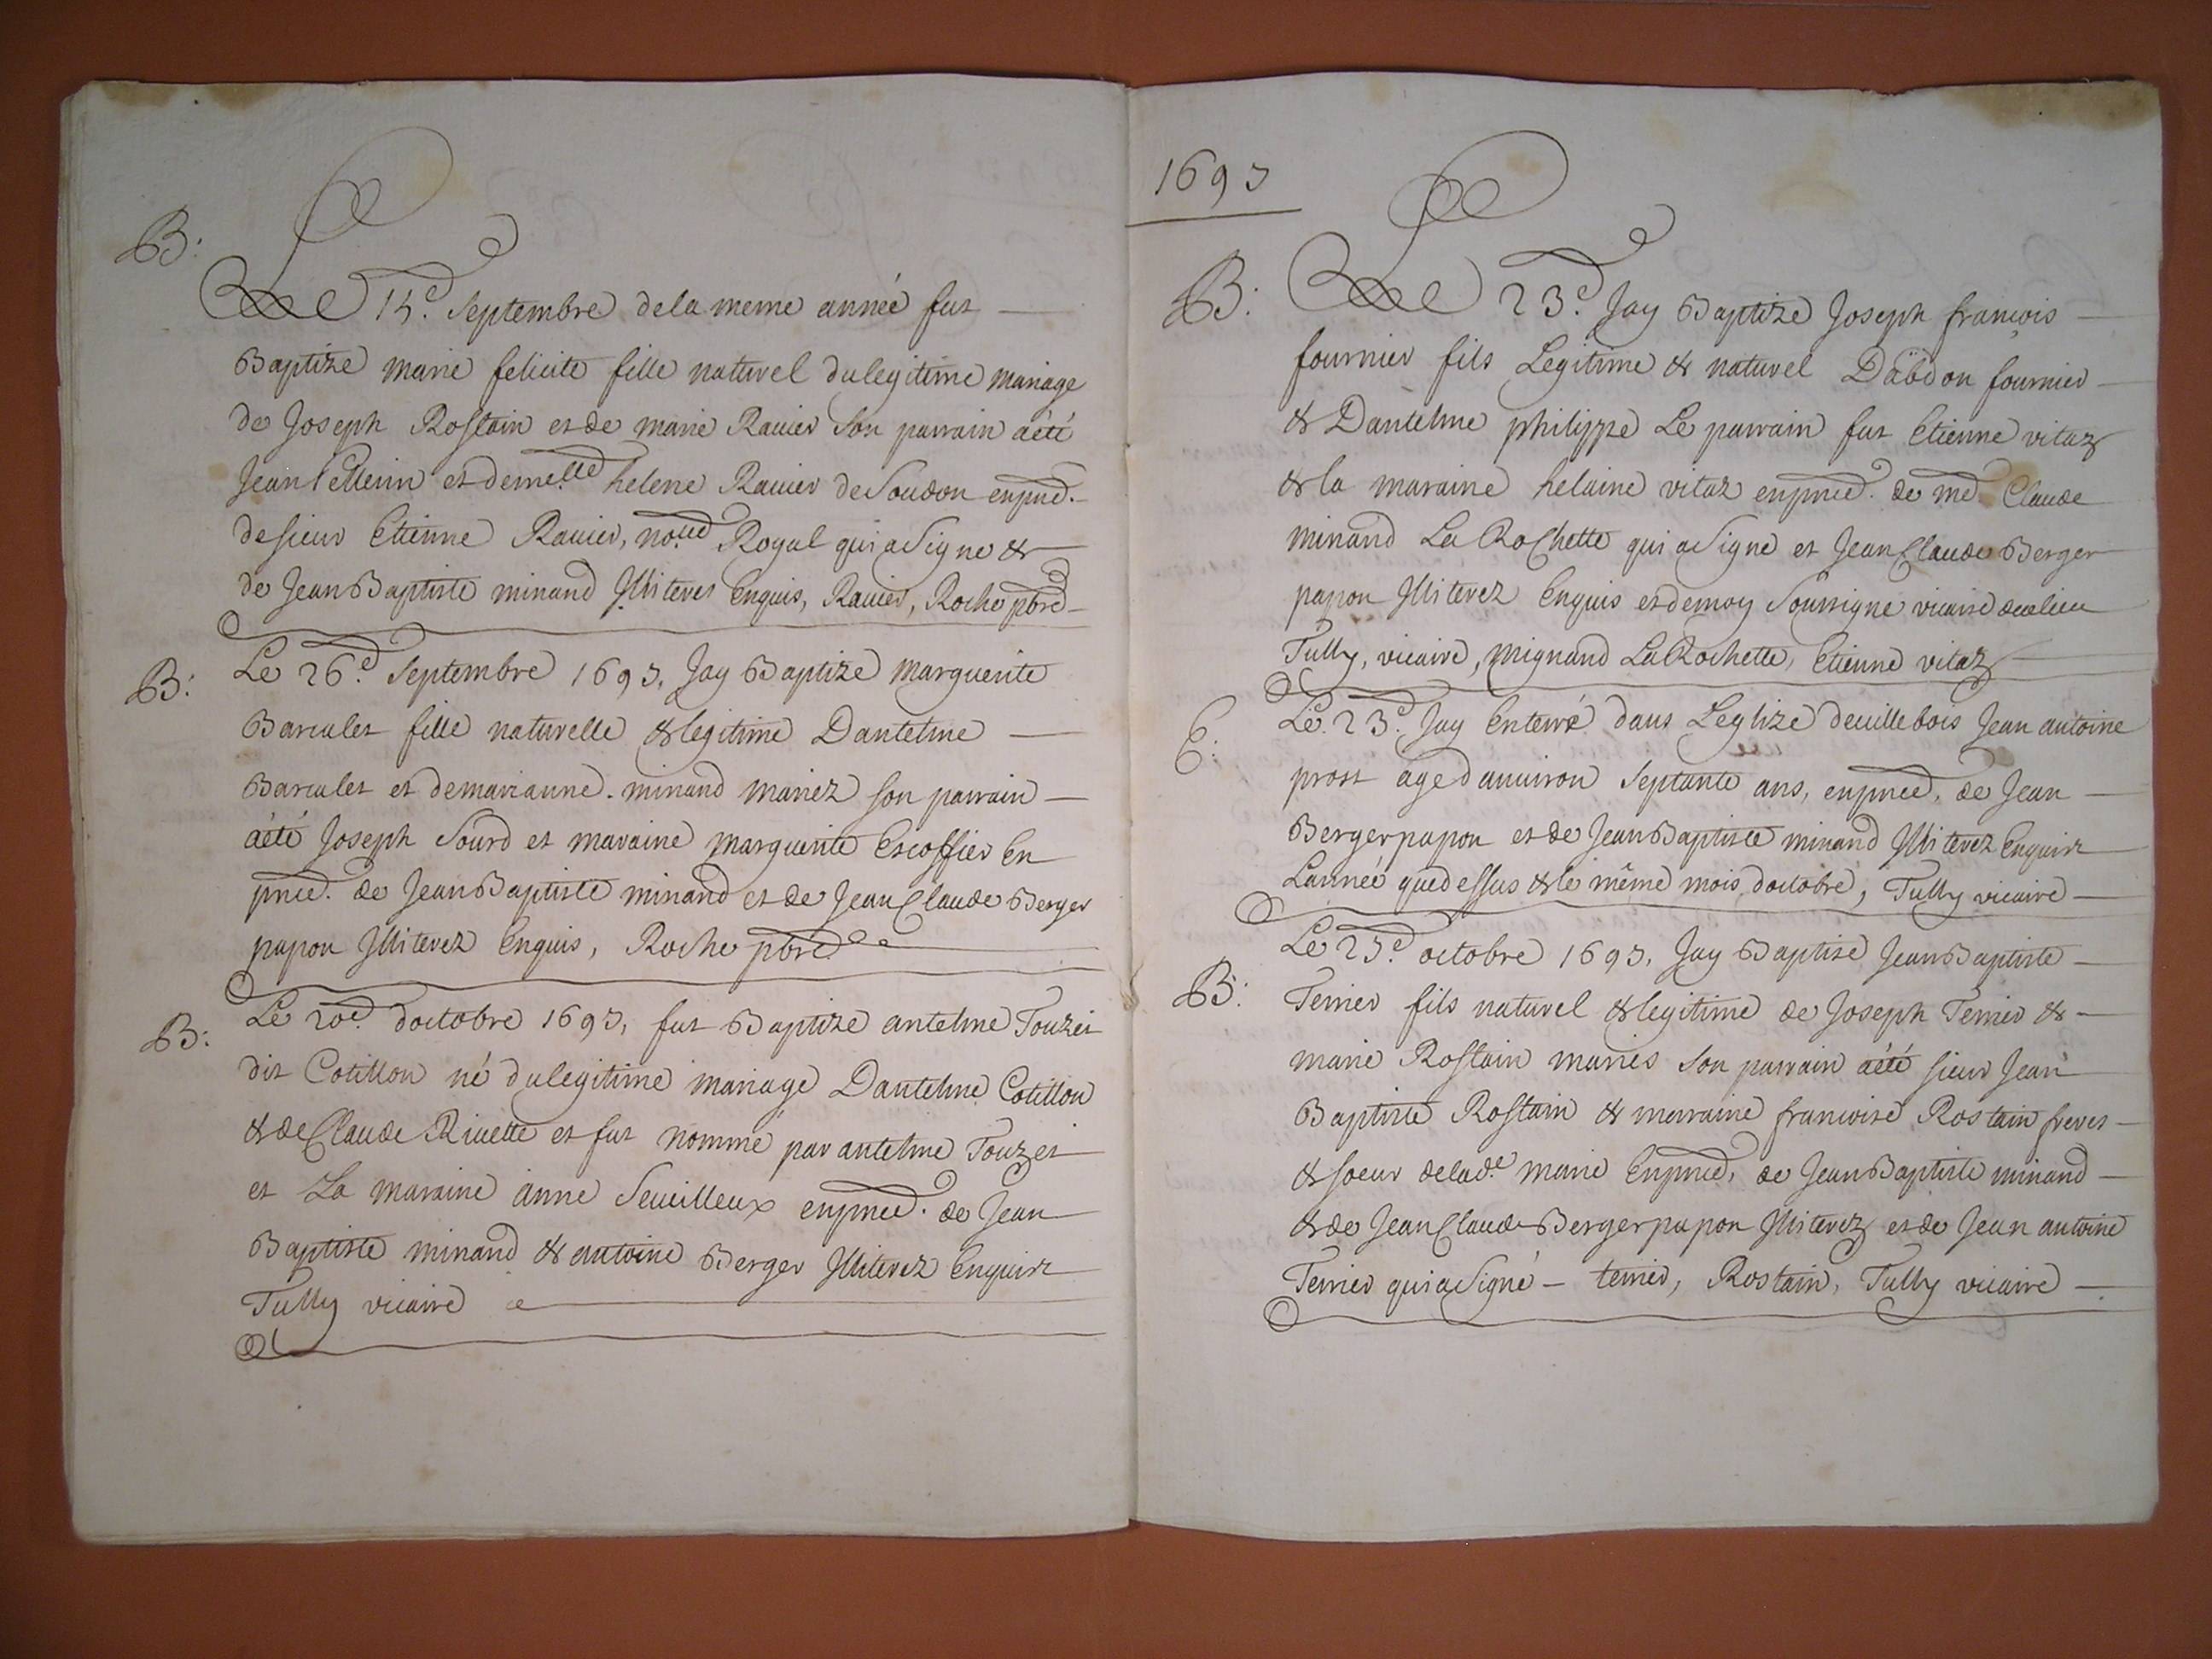 B:
Le 15e. Septembre de la meme année fut
Baptize marie felicite fille naturel du legitime mariage
de Joseph Rostain et de marie Rauier Son parrain a été
Jean et demelle helene Rauier de Soudon enpnce.
de sieur Etienne Rauier, nore Royal qui a Signe &
de Jean Baptiste minand Illiterés Enquis, Rauier, Roche pbre
B:
Le 26e. Septembre 1693. Jay Baptize Marguerite
Barculet fille naturelle & legitime Dantelme
Barculet et de marianne. minand mariez son parrain
a été Joseph Sourd et maraine marguerite Escoffier En
pnce. de Jean Baptiste minand et de Jean Claude Berger
papon Illiterez Enquis, Roche pbre
B:
Le 20e. doctobre 1693, fut Baptize antelme Touzet
dit Cotillon né du legitime mariage Dantelme Cotillon
& de Claude Riuette et fut nommé par antelme Touzet
et La maraine anne enpnce. de Jean
Baptiste minand & antoine Berger Illiterez Enquis
Tully vicaire
1693
B:
Le 23e. Jay Baptize Joseph francois
fournier fils Legitime & naturel Dabdon fournier
& Dantelme philippe Le parrain fut Etienne vitaz
& la maraine helaine vitaz enpnce. de me Claude
minand La Rochette qui a Signe et Jean Claude Berger
papon Illiterez Enquis et de moy Soussigne vicaire dece lieu
Tully, vicaire, Mignand La Rochette, Etienne vitaz
E:
Le 23e. Jay Enterré dans Leglize deuillebois Jean antoine
prost age danuiron Septante ans, enpnce, de Jean
Berger papon et de Jean Baptiste minand Illiterez Enquis
Lannée que dessus & le même mois doctobre, Tully vicaire
B:
Le 25e. octobre 1693. Jay Baptisé Jean Baptiste
Terrier fils naturel & legitime de Joseph Terrier &
marie Rostain mariés Son parrain a été sieur Jean
Baptiste Rostain & marraine francoise Rostain freres
& soeur de lade. marie Enpnce, de Jean Baptiste minand
& de Jean Claude Berger papon Illiterez et de Jean antoine
Terrier qui a Signé – terrier, Rostain, Tully vicaire